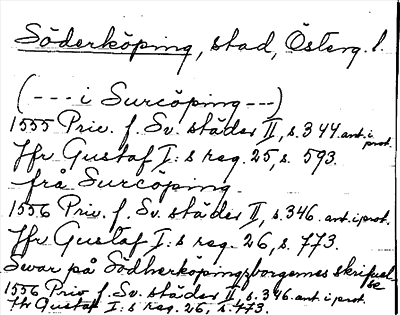 Söderköping, stad, Österg. l.
(--- i Surcöping ---)
1555 Priv. f. Sv. städer II, s. 344 ant. i prot.
Jfr Gustaf I:s reg. 25, s. 593.
från Surcöping.
1556 Priv. f. Sv. städer II, s. 346 ant. i prot.
Jfr Gustaf I:s reg. 26, s. 773.
Swar på Södherköpingzborgernes skrifuelse
1556 Priv. f. Sv. städer II, s. 346 ant. i prot.
Jfr Gustaf I:s reg. 26, s. 773.